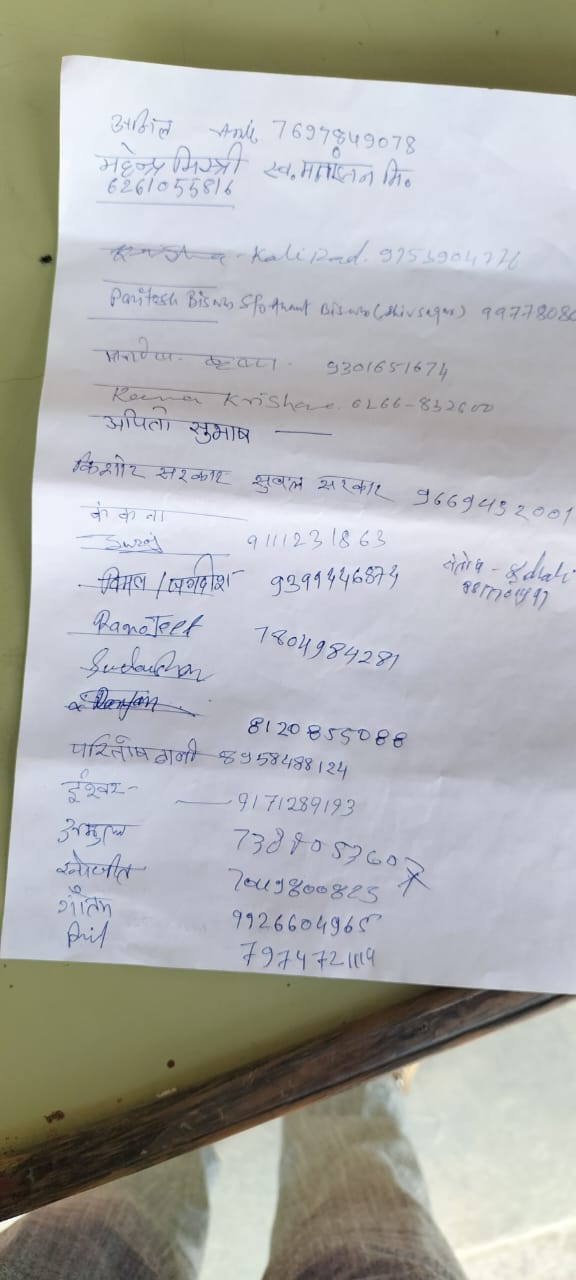 अनिल Anil 7697849078
महेन्द्र मिस्त्री स्व. मनोरंजन मि.
6261055816
Kalipad. 9753904776
Paritosh Biswas S/o Anant Biswas (Shivsagar) 9977808
9301651674
Krishna 6266-832600
अर्पिता सुभाष
किशोर सरकार सुबल सरकार 9669432001
कंकना
Suroj 9111231863
विमल / जगदीश 9399446874
Ranojeet 7804984281
Sudarshan
Ranjan
8120855088
परितोष ढाली 8958488124
ईश्वर - 9171289193
अमूल्य
रनोजीत 7049800823
गौतम 9926604965
Anil 7974721114